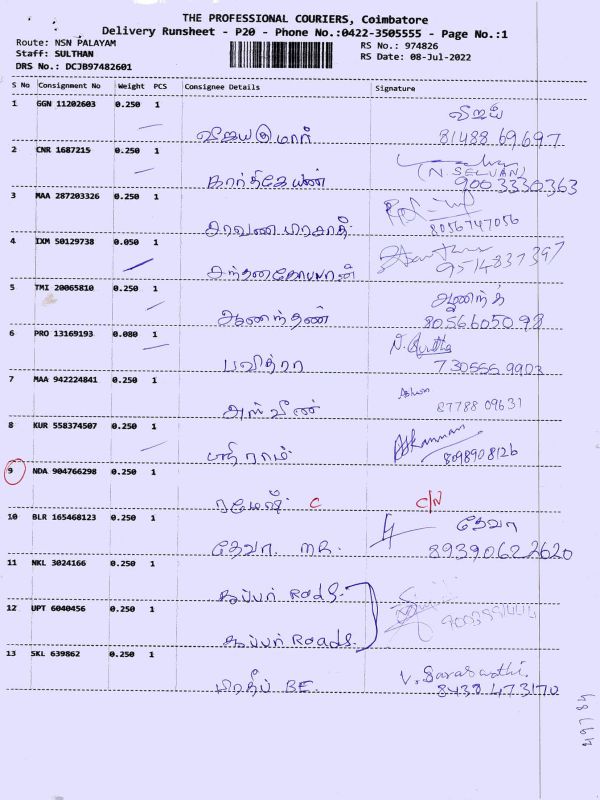 THE PROFESSIONAL COURIERS, Coimbatore
Delivery Runsheet - P20 - Phone No.:0422-3505555 - Page No.:1
Route: NSN PALAYAM
Staff: SULTHAN
DRS No.: DCJB97482601
RS No.: 974826
RS Date: 08-Jul-2022
S No Consignment No Weight PCS Consignee Details Signature
1 GGN 11202603 0.250 1
விஜய்
விஜயகுமார் 81488 69697
2 CNR 1687215 0.250 1
(N. SELVAN)
கார்த்திகேயன் 900 3330363
3 MAA 287203326 0.250 1
சரவண பிரசாத் 8056747056
4 IXM 50129738 0.050 1
சந்தனகோபாலன் 9514837397
5 TMI 20065810 0.250 1
ஆனந்த்
ஆனந்தன் 8056605098
6 PRO 13169193 0.080 1
பவித்ரா 730555 9903
7 MAA 942224841 0.250 1
Ashwin
அஸ்வின் 87788 09631
8 KUR 558374507 0.250 1
ஸ்ரீ ராம் 8098908126
9 NDA 904766298 0.250 1
ரமேஷ் C C/N
10 BLR 165468123 0.250 1
தேவா
தேவா. MR. 89390622620
11 NKL 3024166 0.250 1
சூப்பர் Roads.
12 UPT 6040456 0.250 1
சூப்பர் Roads.
13 SKL 639862 0.250 1
V. Saraswathi
பிரதீப் BE. 8438 473170